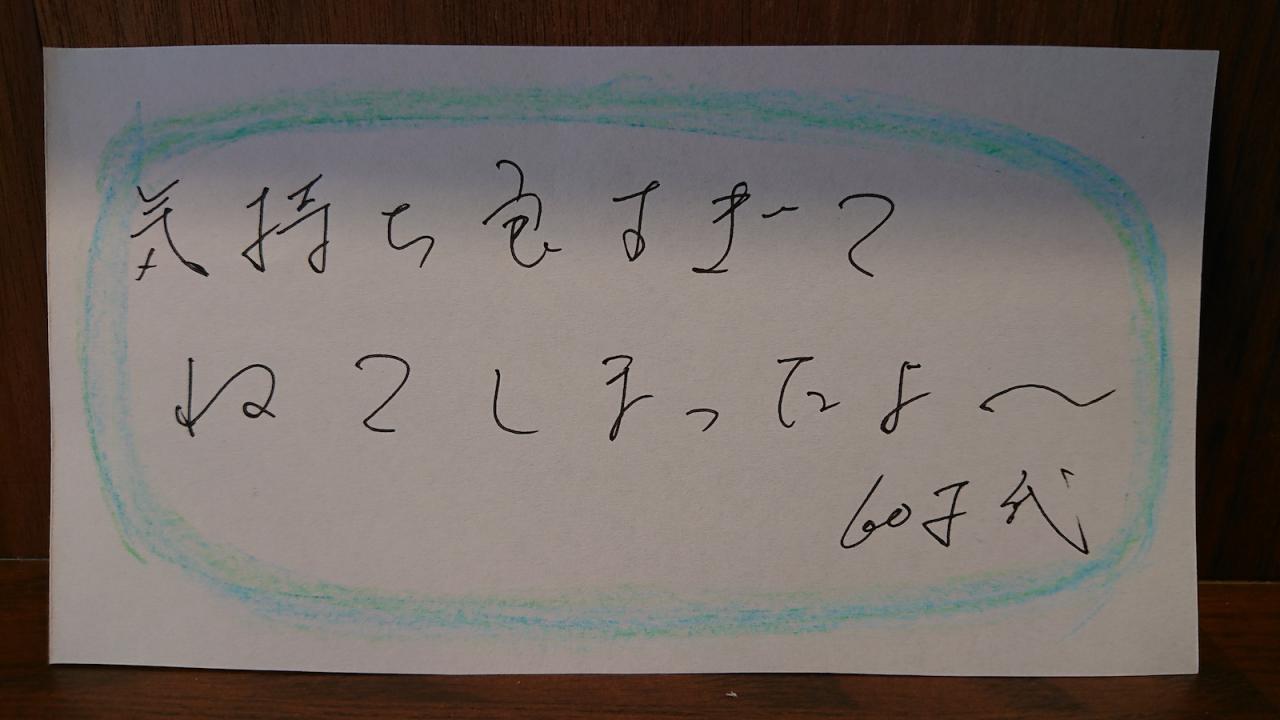 気持ち良すぎて
ねてしまったよ〜
60才代